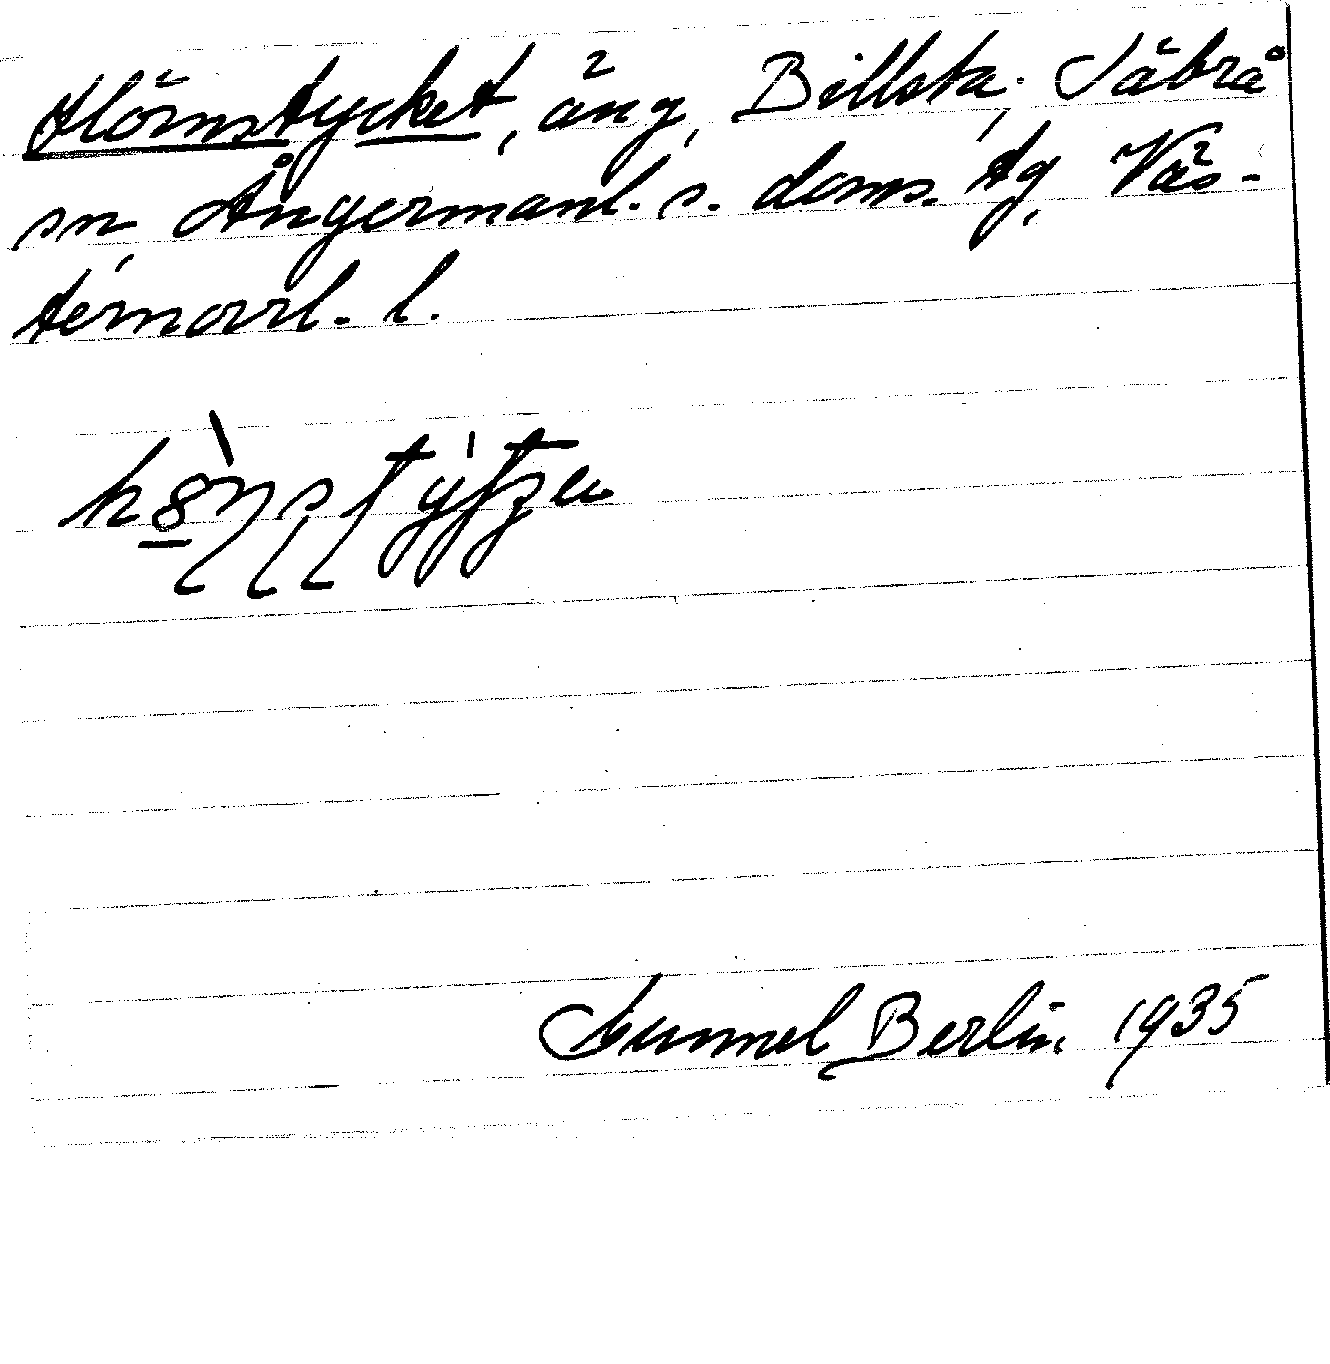 Hörnstycket, äng, Billsta, Säbrå
sn, Ångermanl. s. doms. tg, Väs-
ternorrl. l.
Gunnel Berlin 1935